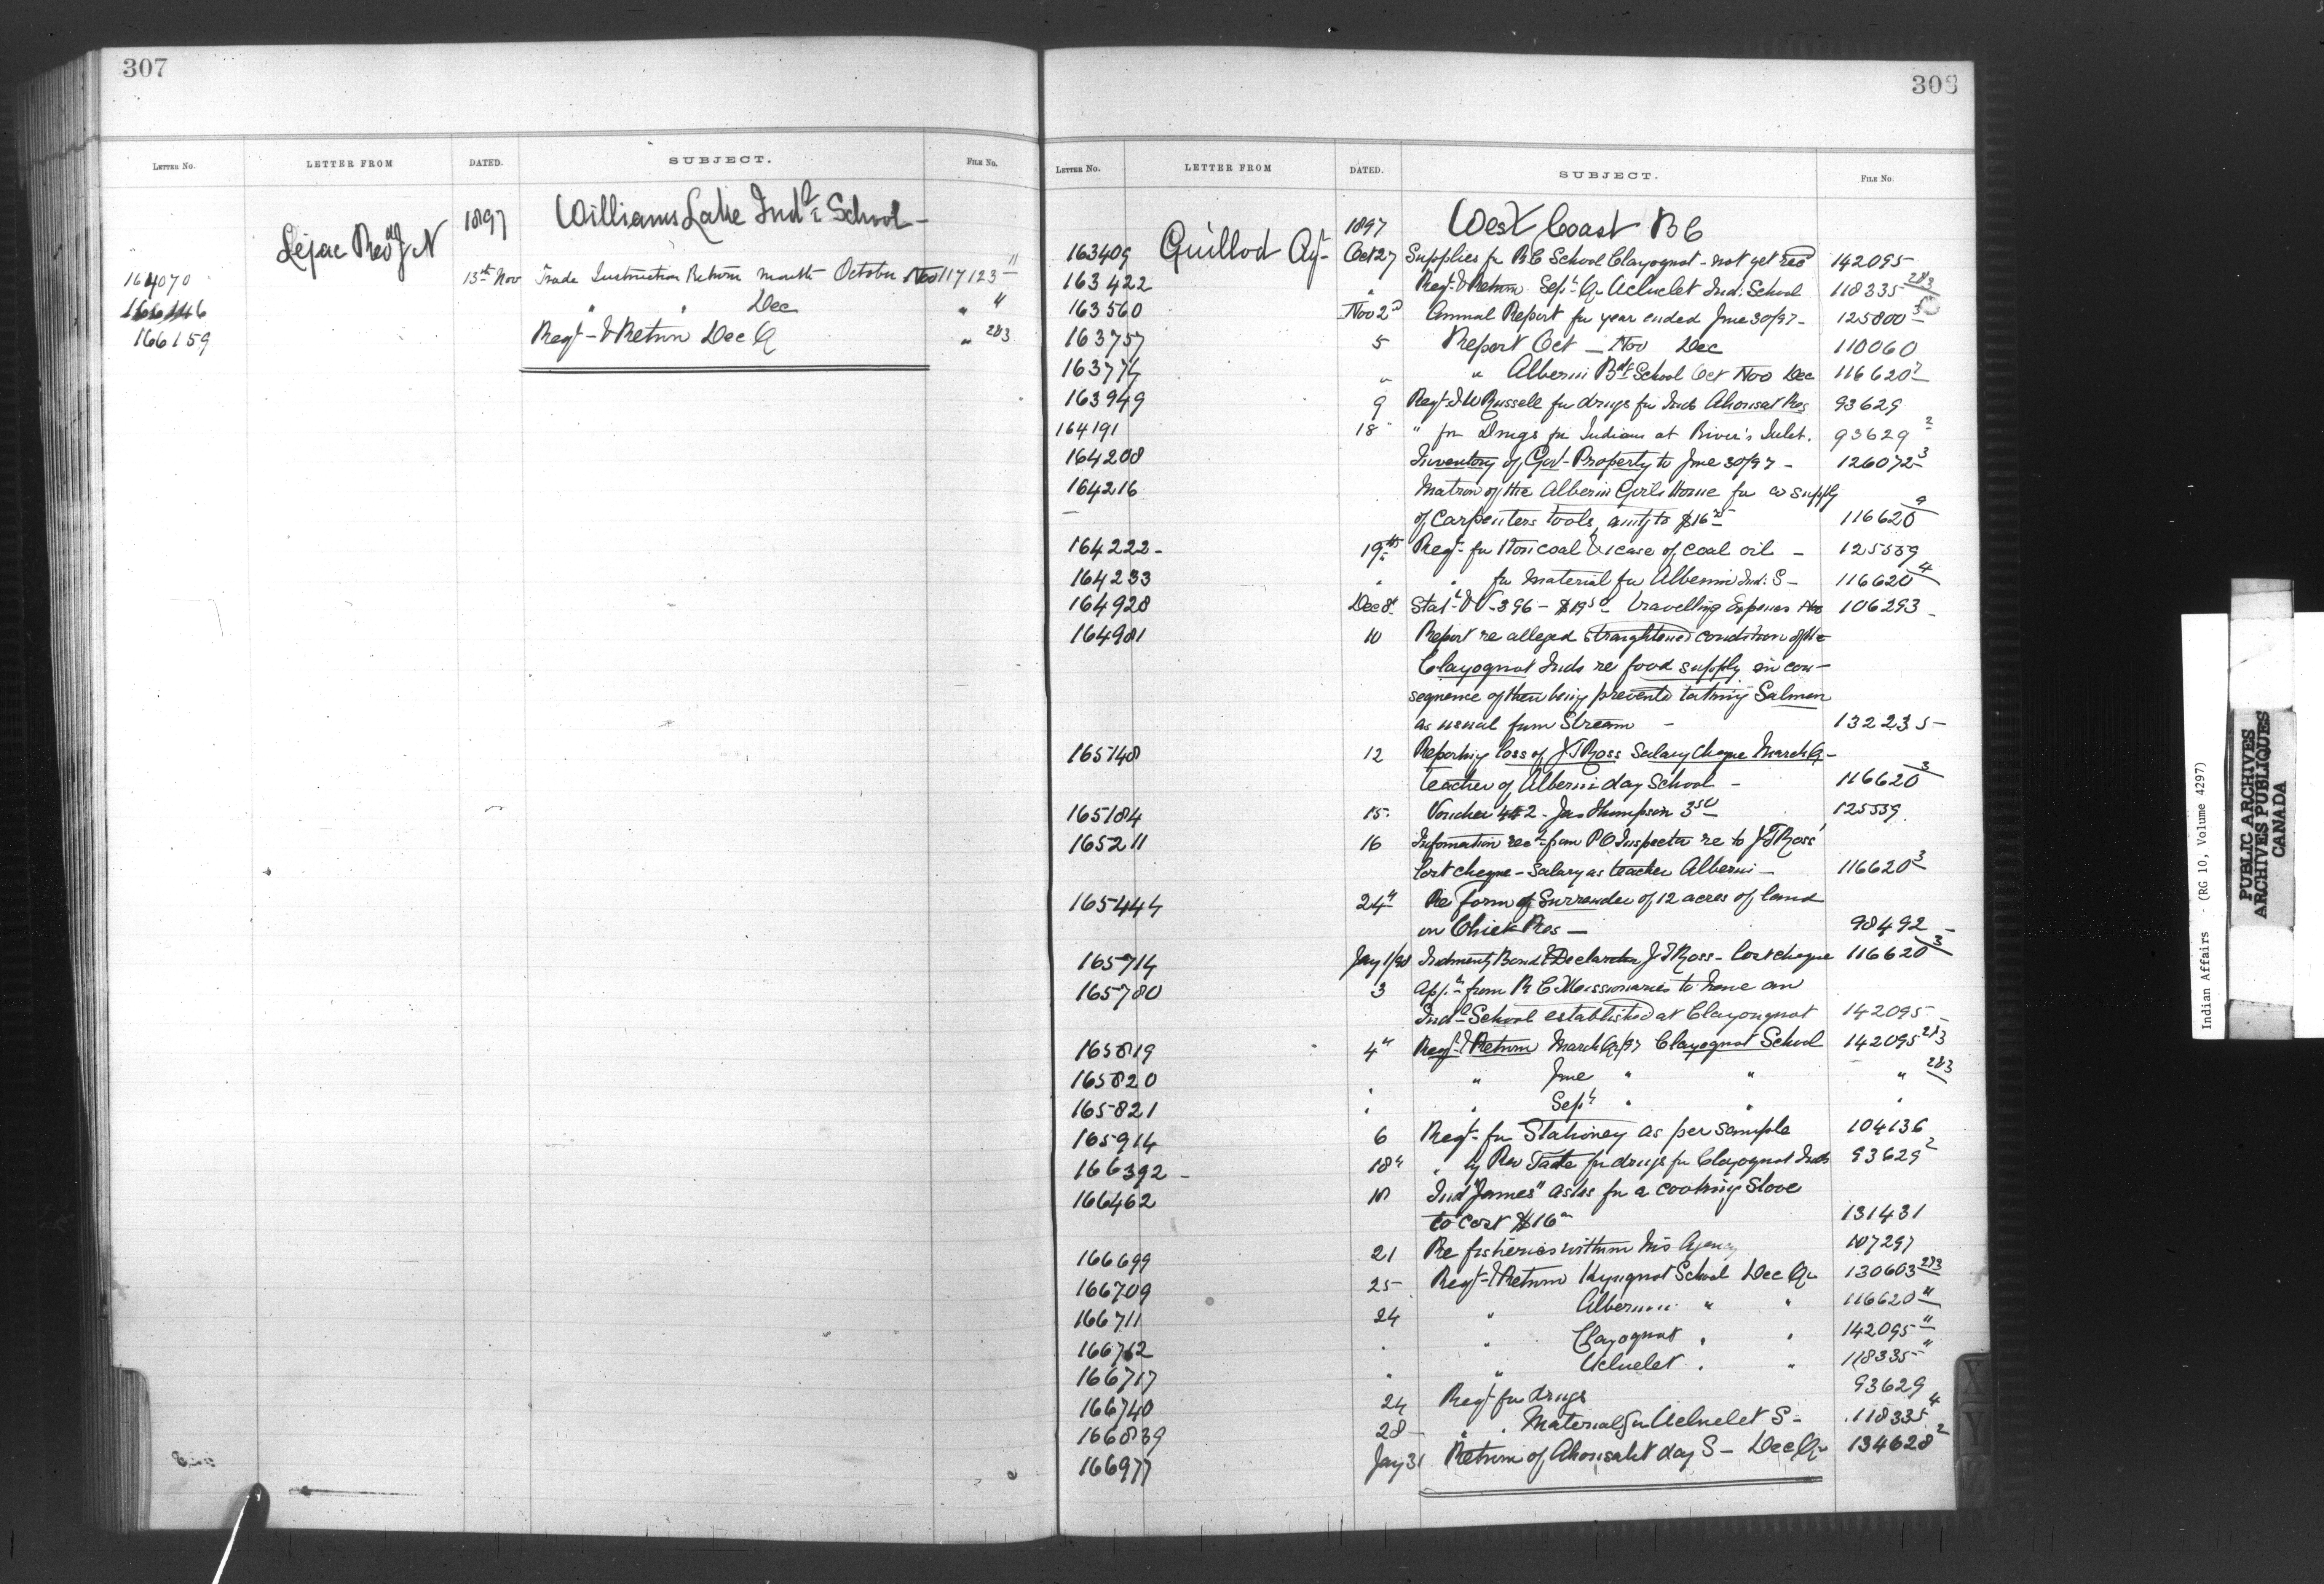 307
LETTER No. LETTER FROM DATED. SUBJECT. FILE No.
1897 Williams Lake Indl School -
Lejac Revd J N
164070 13th Nov Trade Instruction Return month October Nov 117123 11
166146 " " Dec " "
166159 Regr & Return Dec Q " 283
308
LETTER No. LETTER FROM DATED. SUBJECT. FILE No.
1897 West Coast B C
163409 Guillod Agt Oct 27 Supplies for R C School Clayoquot - not yet recd 142095
163422 " Regr & Return Sept Qr Ucluelet Ind. School 118335 283
163560 Nov 2d Annual Report for year ended June 30/97 - 125800 3
163757 5 Report Oct - Nov Dec 110060
163774 " " Alberni Bdg School Oct Nov Dec 116620 7
163949 9 Reqt J W Russell for drugs for Inds Ahousat Res 93629
164191 18 " for Drugs for Indians at River's Inlet. 93629 2
164208 Inventory of Govt Property to June 30/97 - 126072 3
164216 Matron of the Alberni Girls Home for a supply
of Carpenters tools, amtg to $16 116620 9
164222 - 19th Reqt for 1 ton coal & 1 case of coal oil - 125559
164233 " " for material for Alberni Ind. S - 116620 4
164928 Dec 8 Stat & V - 396 - $19 50 travelling Expenses Nov 106293 -
164981 10 Report re alleged straightened condition of the
Clayoquot Inds re food supply in con-
sequence of their being prevented catching Salmon
as usual from Stream - 132235 -
165148 12 Reporting loss of J T Ross Salary Cheque March Q -
teacher of Alberni day School - 116620 3
165184 15 Voucher 442 - Jas Thompson 3 50 125559
165211 16 Information recd from P O Inspector re to J T Ross'
lost cheque - Salary as teacher Alberni - 116620 3
165444 24" Re form of Surrender of 12 acres of land
on Res - 98492 -
165714 Jany 1/98 Indemnity Bond & Declaration J T Ross - lost cheque 116620 3
165780 3 Appn from R C Missionaries to have an
Indl School established at Clayoquot 142095 -
165819 4" Regr & Return March Qr/97 Clayoquot School 142095 283
165820 " " June " " " 283
165821 " " Sept " " "
165914 6 Reqt for Stationery as per sample 104136
166392 - 18" " by Rev for drugs for Clayoquot Inds 93629 2
166462 18 Ind "James" asks for a cooking Stove
to cost $16 131431
166699 21 Re fisheries within his Agency 107297
166709 25 Regr & Return Kyuquot School Dec Qr 130603 283
166711 24 " Alberni " " 116620 "
166712 " " Clayoquot " " 142095 "
166717 " " Ucluelet " " 118335 "
166740 24 Reqt for drugs 93629
166839 28 " " Material for Ucluelet S - 118335 4
166977 Jany 31 Return of Ahousaht day S - Dec Qr 134628 2
X
Y
Z
Indian Affairs - (RG 10, Volume 4297)
PUBLIC ARCHIVES
ARCHIVES PUBLIQUES
CANADA